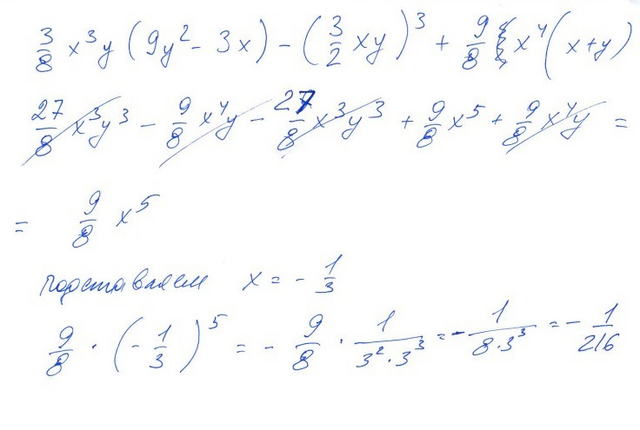 3/8 x³y (9y² - 3x) - (3/2 xy)³ + 9/8 x⁴ (x+y)
27/8 x³y³ - 9/8 x⁴y - 27/8 x³y³ + 9/8 x⁵ + 9/8 x⁴y =
= 9/8 x⁵
подставляем x = - 1/3
9/8 · (- 1/3)⁵ = - 9/8 · 1/(3²·3³) = - 1/(8·3³) = - 1/216